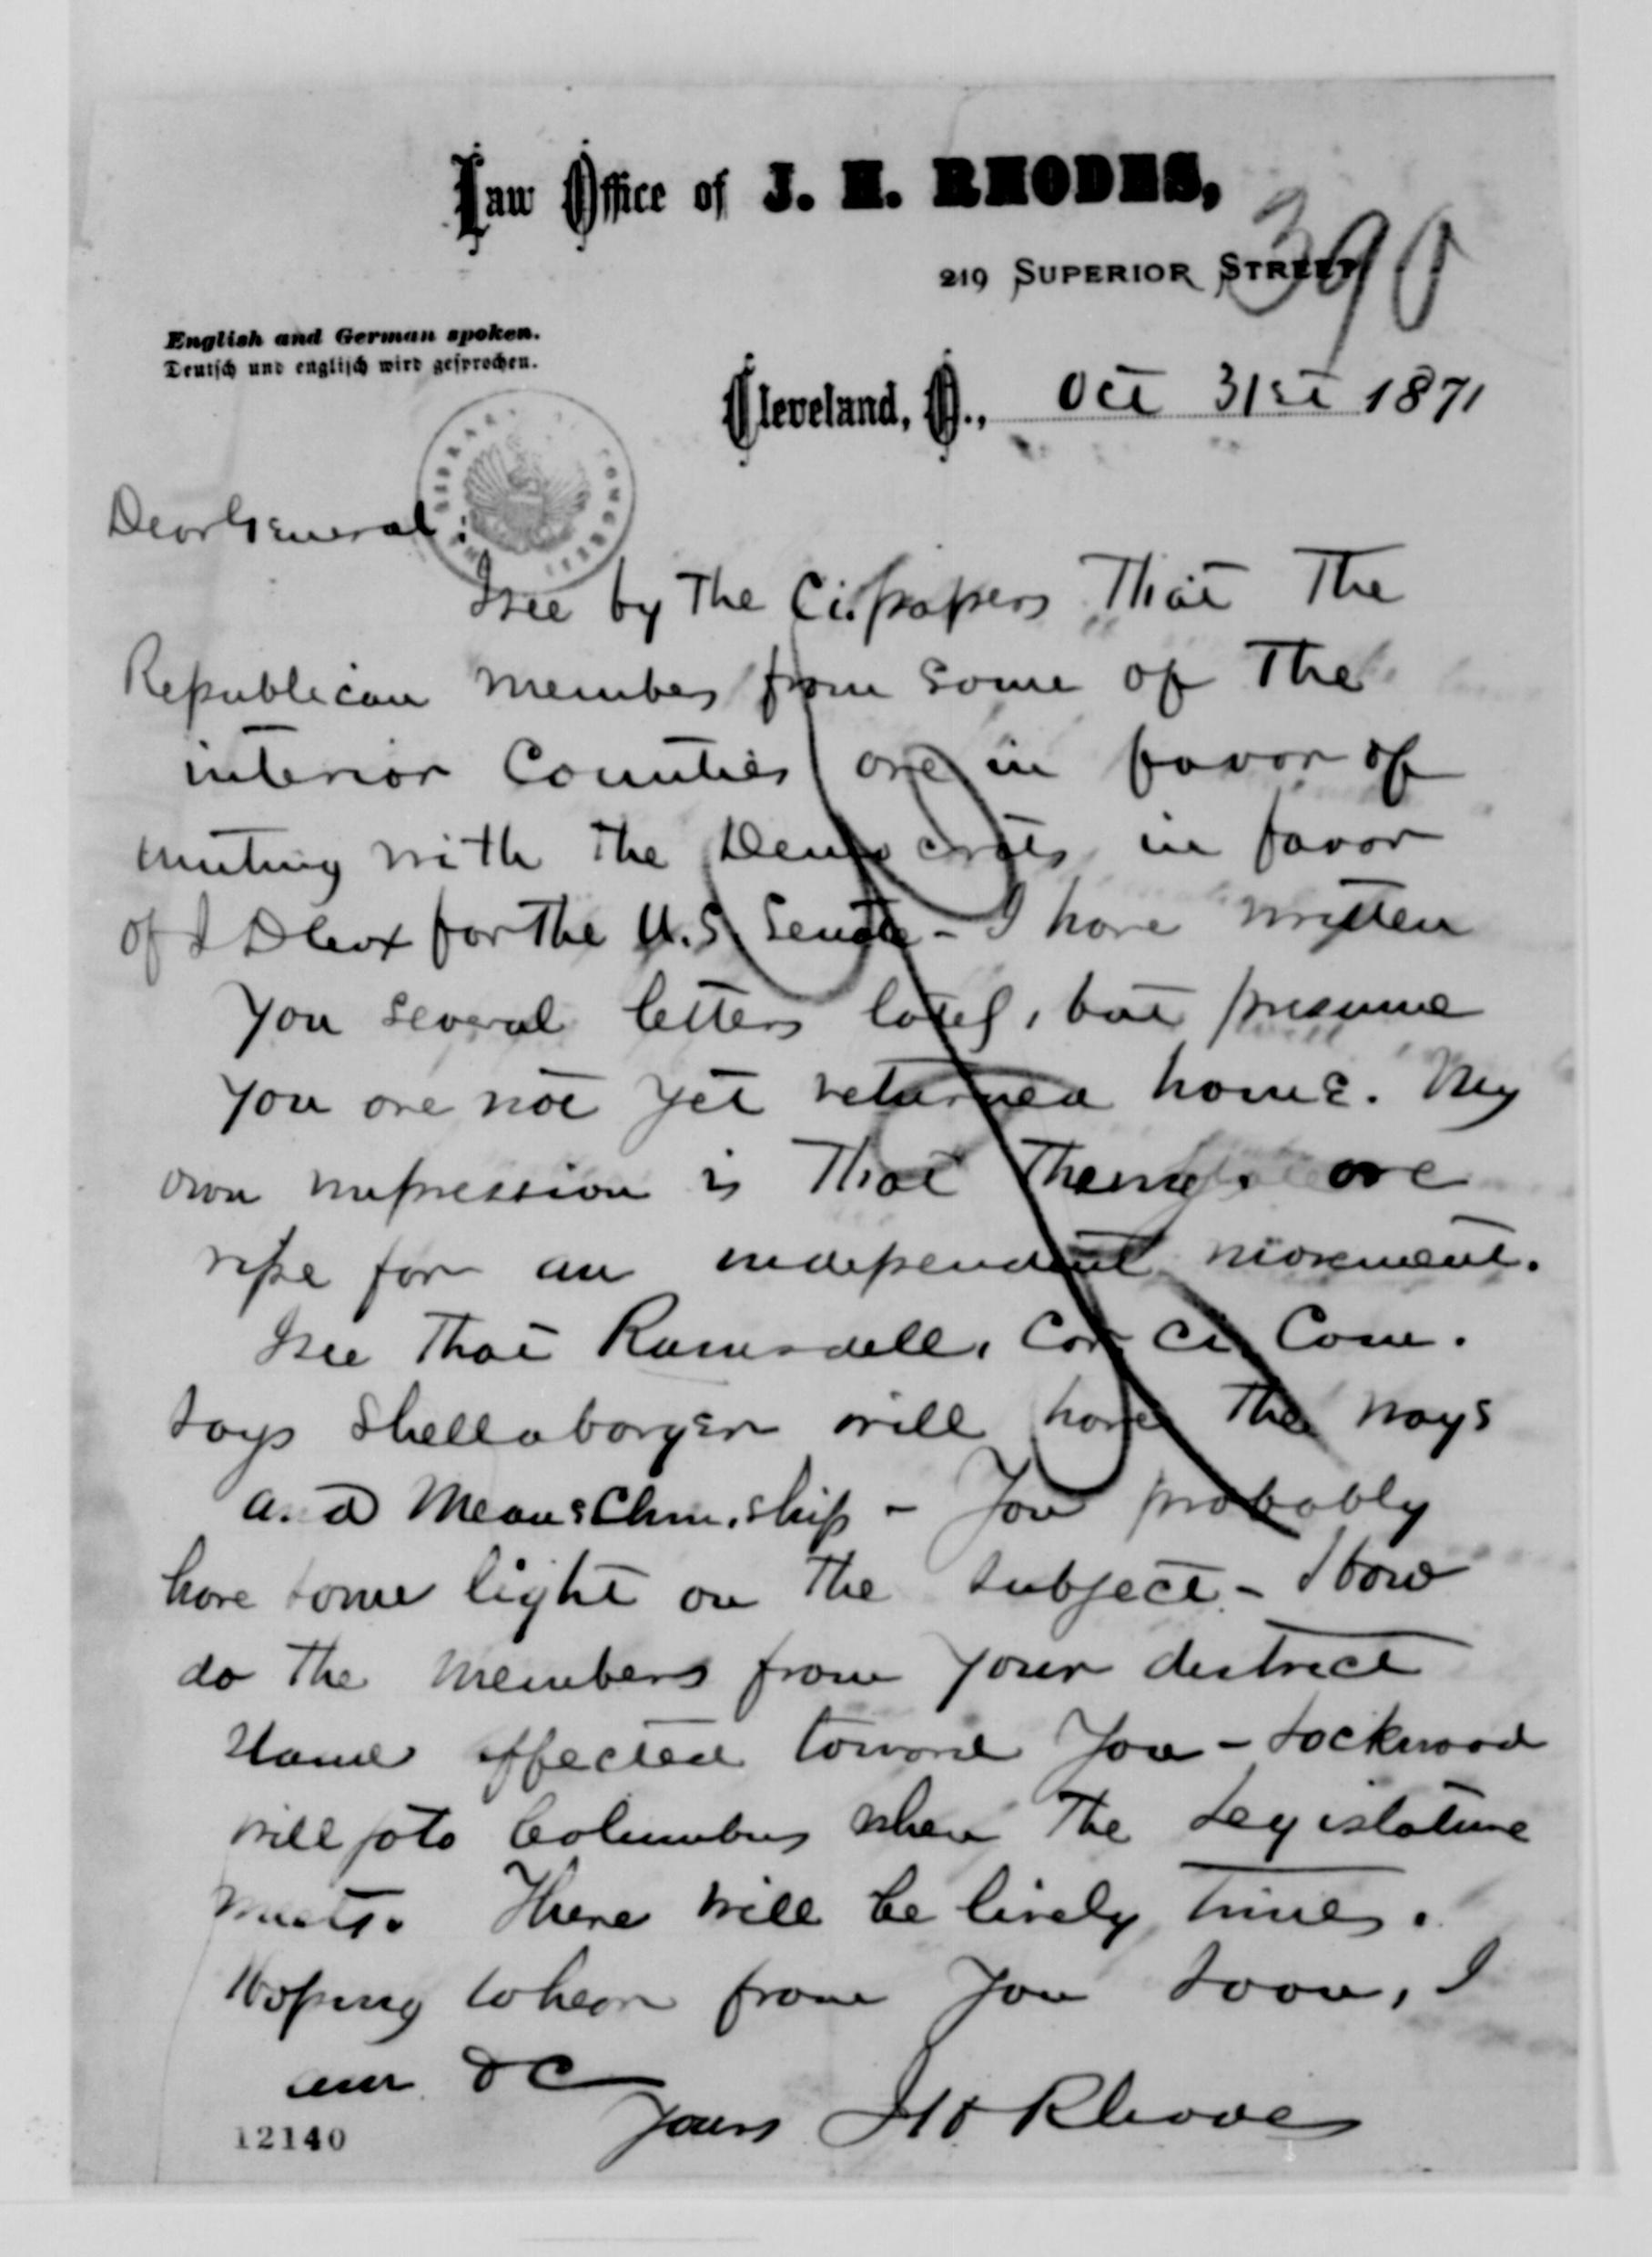 Law Office of J. H. RHODES,
390
219 SUPERIOR STREET
English and German spoken.
Deutsch und englisch wird gesprochen.
Cleveland, O., Oct 31st 1871
LIBRARY OF CONGRESS
Dear General:
I see by the Ci. papers that the
Republican members from some of the
interior Counties are in favor of
uniting with the Democrats in favor
of J D Cox for the U.S. Senate - I have written
you several letters lately, but presume
you are not yet returned home. My
own impression is that things are
ripe for an independent movement.
I see that Ramsdell, Cor Ci. Com.
says Shellabarger will have the ways
and Means Chm.ship - You probably
have some light on the subject - How
do the members from your district
stand affected toward you - Lockwood
will go to Columbus when the Legislature
meets. There will be lively times.
Hoping to hear from you soon, I
am &c
Yours J H Rhodes
12140